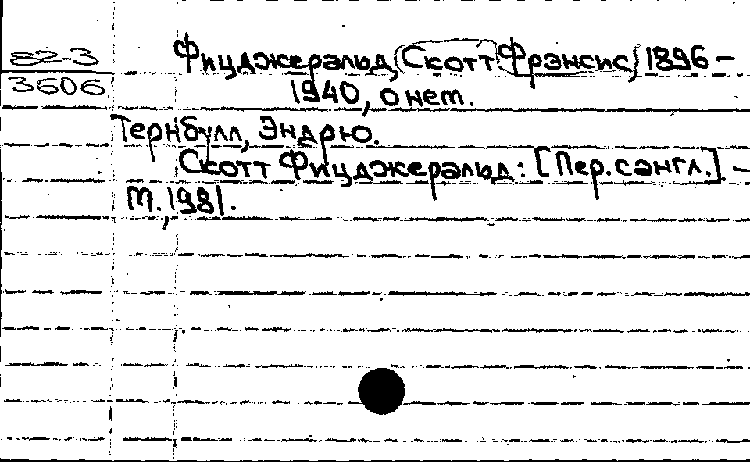 82-3
3606
Фицджеральд, Скотт Фрэнсис, 1896 –
1940, о нем.
Тернбулл, Эндрю.
Скотт Фицджеральд: [Пер. с англ.] –
М., 1981.